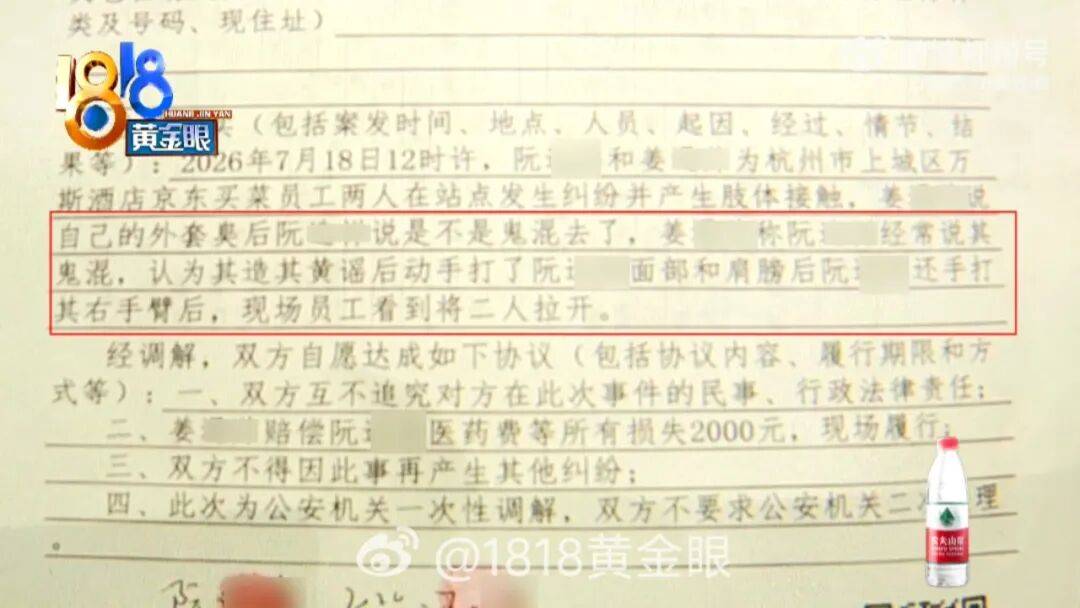 类及号码、现住址）
1818
HUANG JIN YAN
黄金眼
（包括案发时间、地点、人员、起因、经过、情节、结
果等）：2026年7月18日12时许，阮 和姜 为杭州市上城区万
斯酒店京东买菜员工两人在站点发生纠纷并产生肢体接触，姜 说
自己的外套臭后阮 说是不是鬼混去了，姜 称阮 经常说其
鬼混，认为其造其黄谣后动手打了阮 面部和肩膀后阮 还手打
其右手臂后，现场员工看到将二人拉开。
经调解，双方自愿达成如下协议（包括协议内容、履行期限和方
式等）：一、双方互不追究对方在此次事件的民事、行政法律责任；
二、姜 赔偿阮 医药费等所有损失2000元，现场履行；
三、双方不得因此事再产生其他纠纷；
四、此次为公安机关一次性调解，双方不要求公安机关二 理
。
@1818黄金眼
农夫山泉